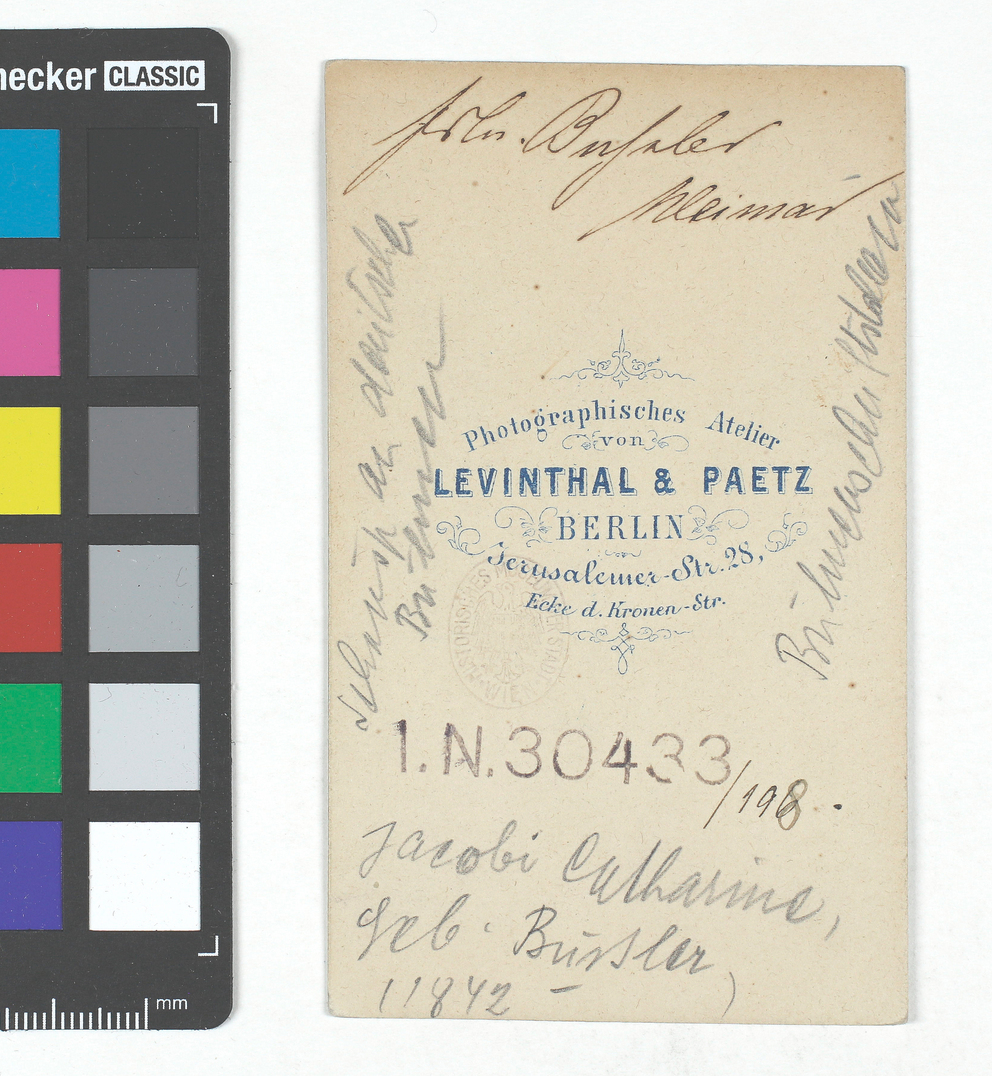 necker CLASSIC
Frln. Bußler
Weimar
Schausp an deutschen
Bühnen
Photographisches Atelier
von
LEVINTHAL & PAETZ
BERLIN
Jerusalemer-Str. 28,
Ecke d. Kronen-Str.
HISTORISCHES MUSEUM DER STADT WIEN
I.N. 30433
/198.
Jacobi Catharine,
geb. Bussler
(1842 – )
mm